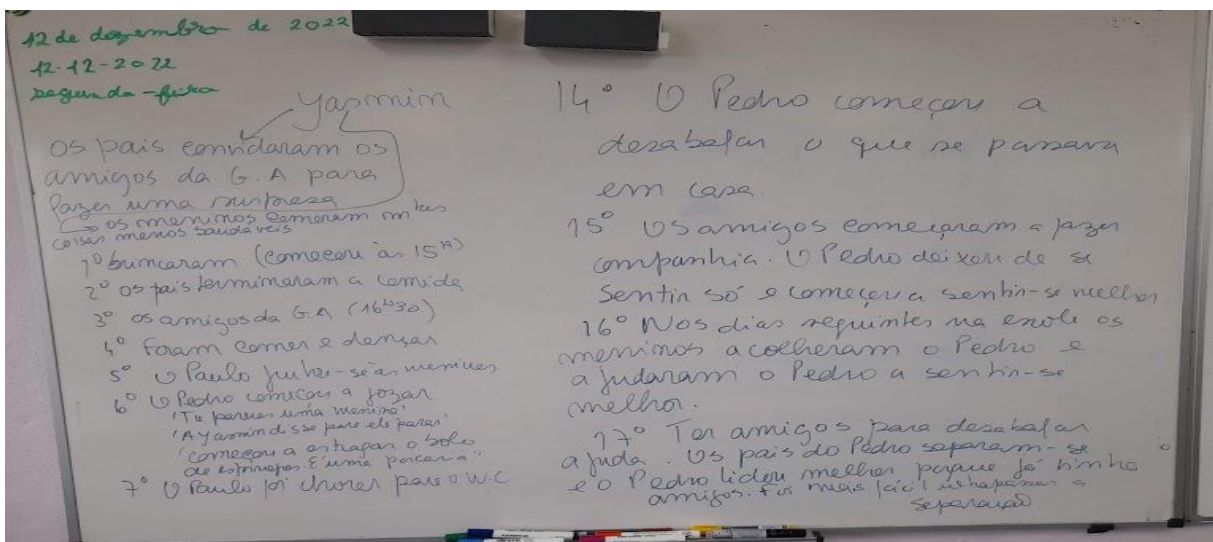 12 de dezembro de 2022
12-12-2022
segunda-feira
Yasmin
os pais convidaram os
amigos da G.A para
fazer uma surpresa
os meninos comeram mtas
coisas menos saudáveis
1º brincaram (começou às 15H)
2º os pais terminaram a comida
3º os amigos da G.A (16H30)
4º Foram comer e dançar
5º O Paulo juntou-se às meninas
6º O Pedro começou a gozar
'Tu pareces uma menina'
'A Yasmin disse para ele parar'
'começou a estragar o bolo
de espinafres. É uma porcaria"
7º O Paulo foi chorar para o W.C
14º O Pedro começou a
desabafar o que se passava
em casa.
15º Os amigos começaram a fazer
companhia. O Pedro deixou de se
sentir só e começou a sentir-se melhor
16º Nos dias seguintes na escola os
meninos acolheram o Pedro e
ajudaram o Pedro a sentir-se
melhor.
17º Ter amigos para desabafar
ajuda. Os pais do Pedro separam-se
e o Pedro lidou melhor porque já tinha
amigos. Foi mais fácil ultrapassar a
separação.